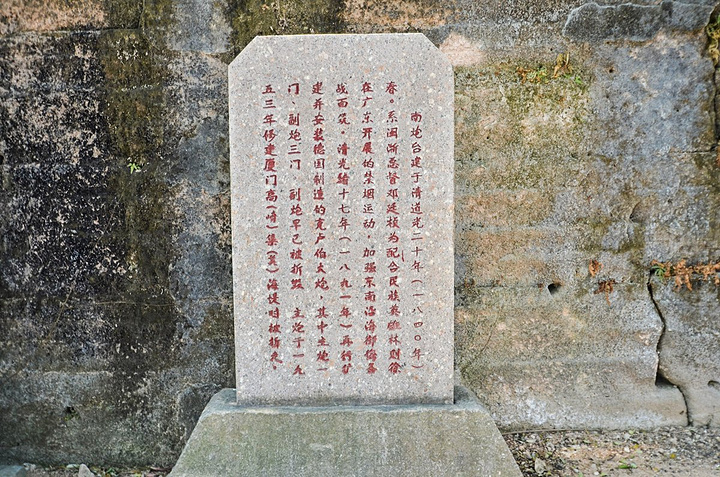 南炮台建于清道光二十年(一八四〇年)
春。系闽浙总督邓廷桢为配合民族英雄林则徐
在广东开展的禁烟运动,加强东南沿海
战而筑。清光绪十七年(一八九一年)再行扩
建并安装德国制造的克卢伯大炮,其中主炮一
门、副炮三门 副炮早已被拆毁 主炮于一九
五三年修建厦门高(崎)集(美)海堤时被拆走。